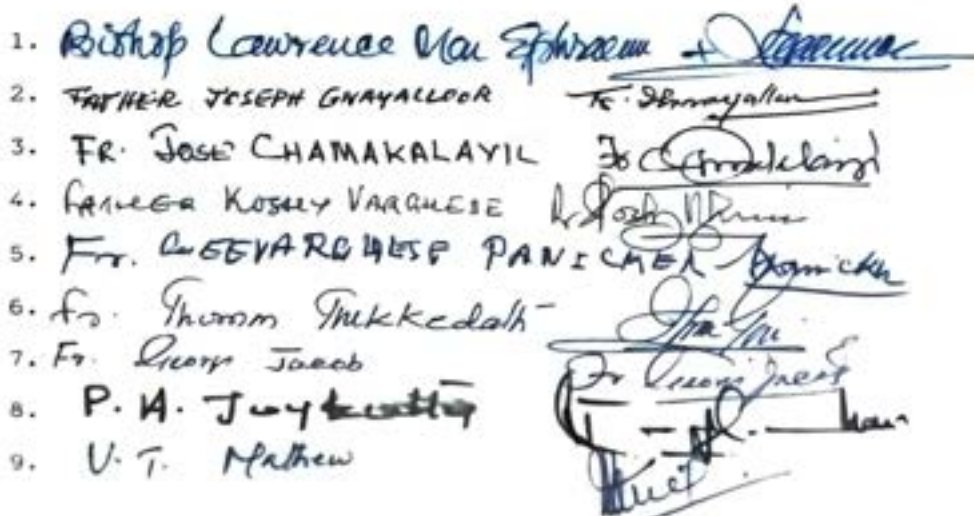 1. Bishop Lawrence Mar Ephraem +
2. FATHER JOSEPH GNAYALLOOR Fr. Gnayalloor
3. FR. JOSE CHAMAKALAYIL Fr Chamakalayil
4. FATHER KOSHY VARGHESE Fr Koshy
5. Fr. GEEVARGHESE PANICKER Panicker
6. Fr. Thomas Thekkedath
7. Fr. George Jacob Fr George Jacob
8. P. A. Joykutty
9. V. T. Mathew